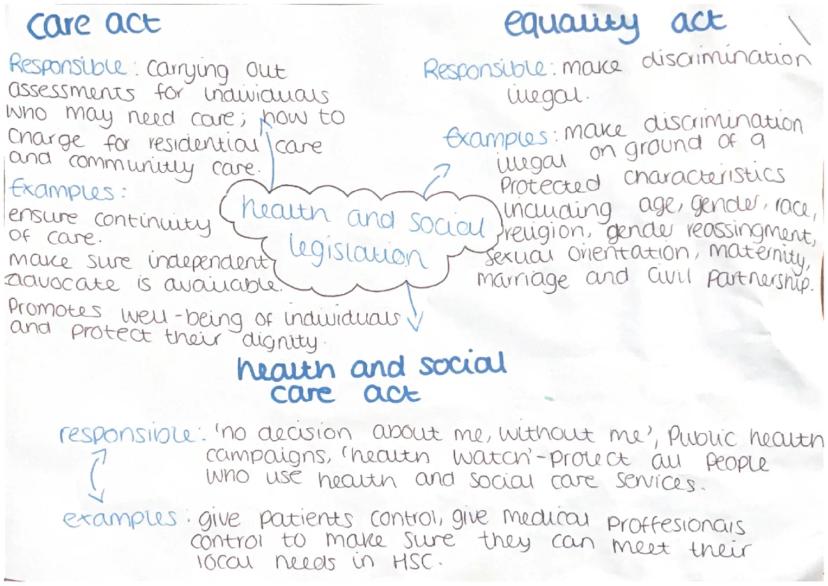 care act
Responsible: carrying out
assessments for individuals
who may need care; how to
charge for residential care
and community care.
Examples:
ensure continuity
of care.
make sure independent
advocate is available.
Promotes well-being of individuals
and protect their dignity.
equality act
Responsible: make discrimination
illegal.
Examples: make discrimination
illegal on ground of 9
Protected characteristics
including age, gender, race,
religion, gender reassingment,
sexual orientation, maternity,
marriage and civil partnership.
health and social
legislation
health and social
care act
responsible: 'no decision about me, without me', Public health
campaigns, 'health watch'-protect all people
who use health and social care services.
examples: give patients control, give medical proffesionals
control to make sure they can meet their
local needs in HSC.